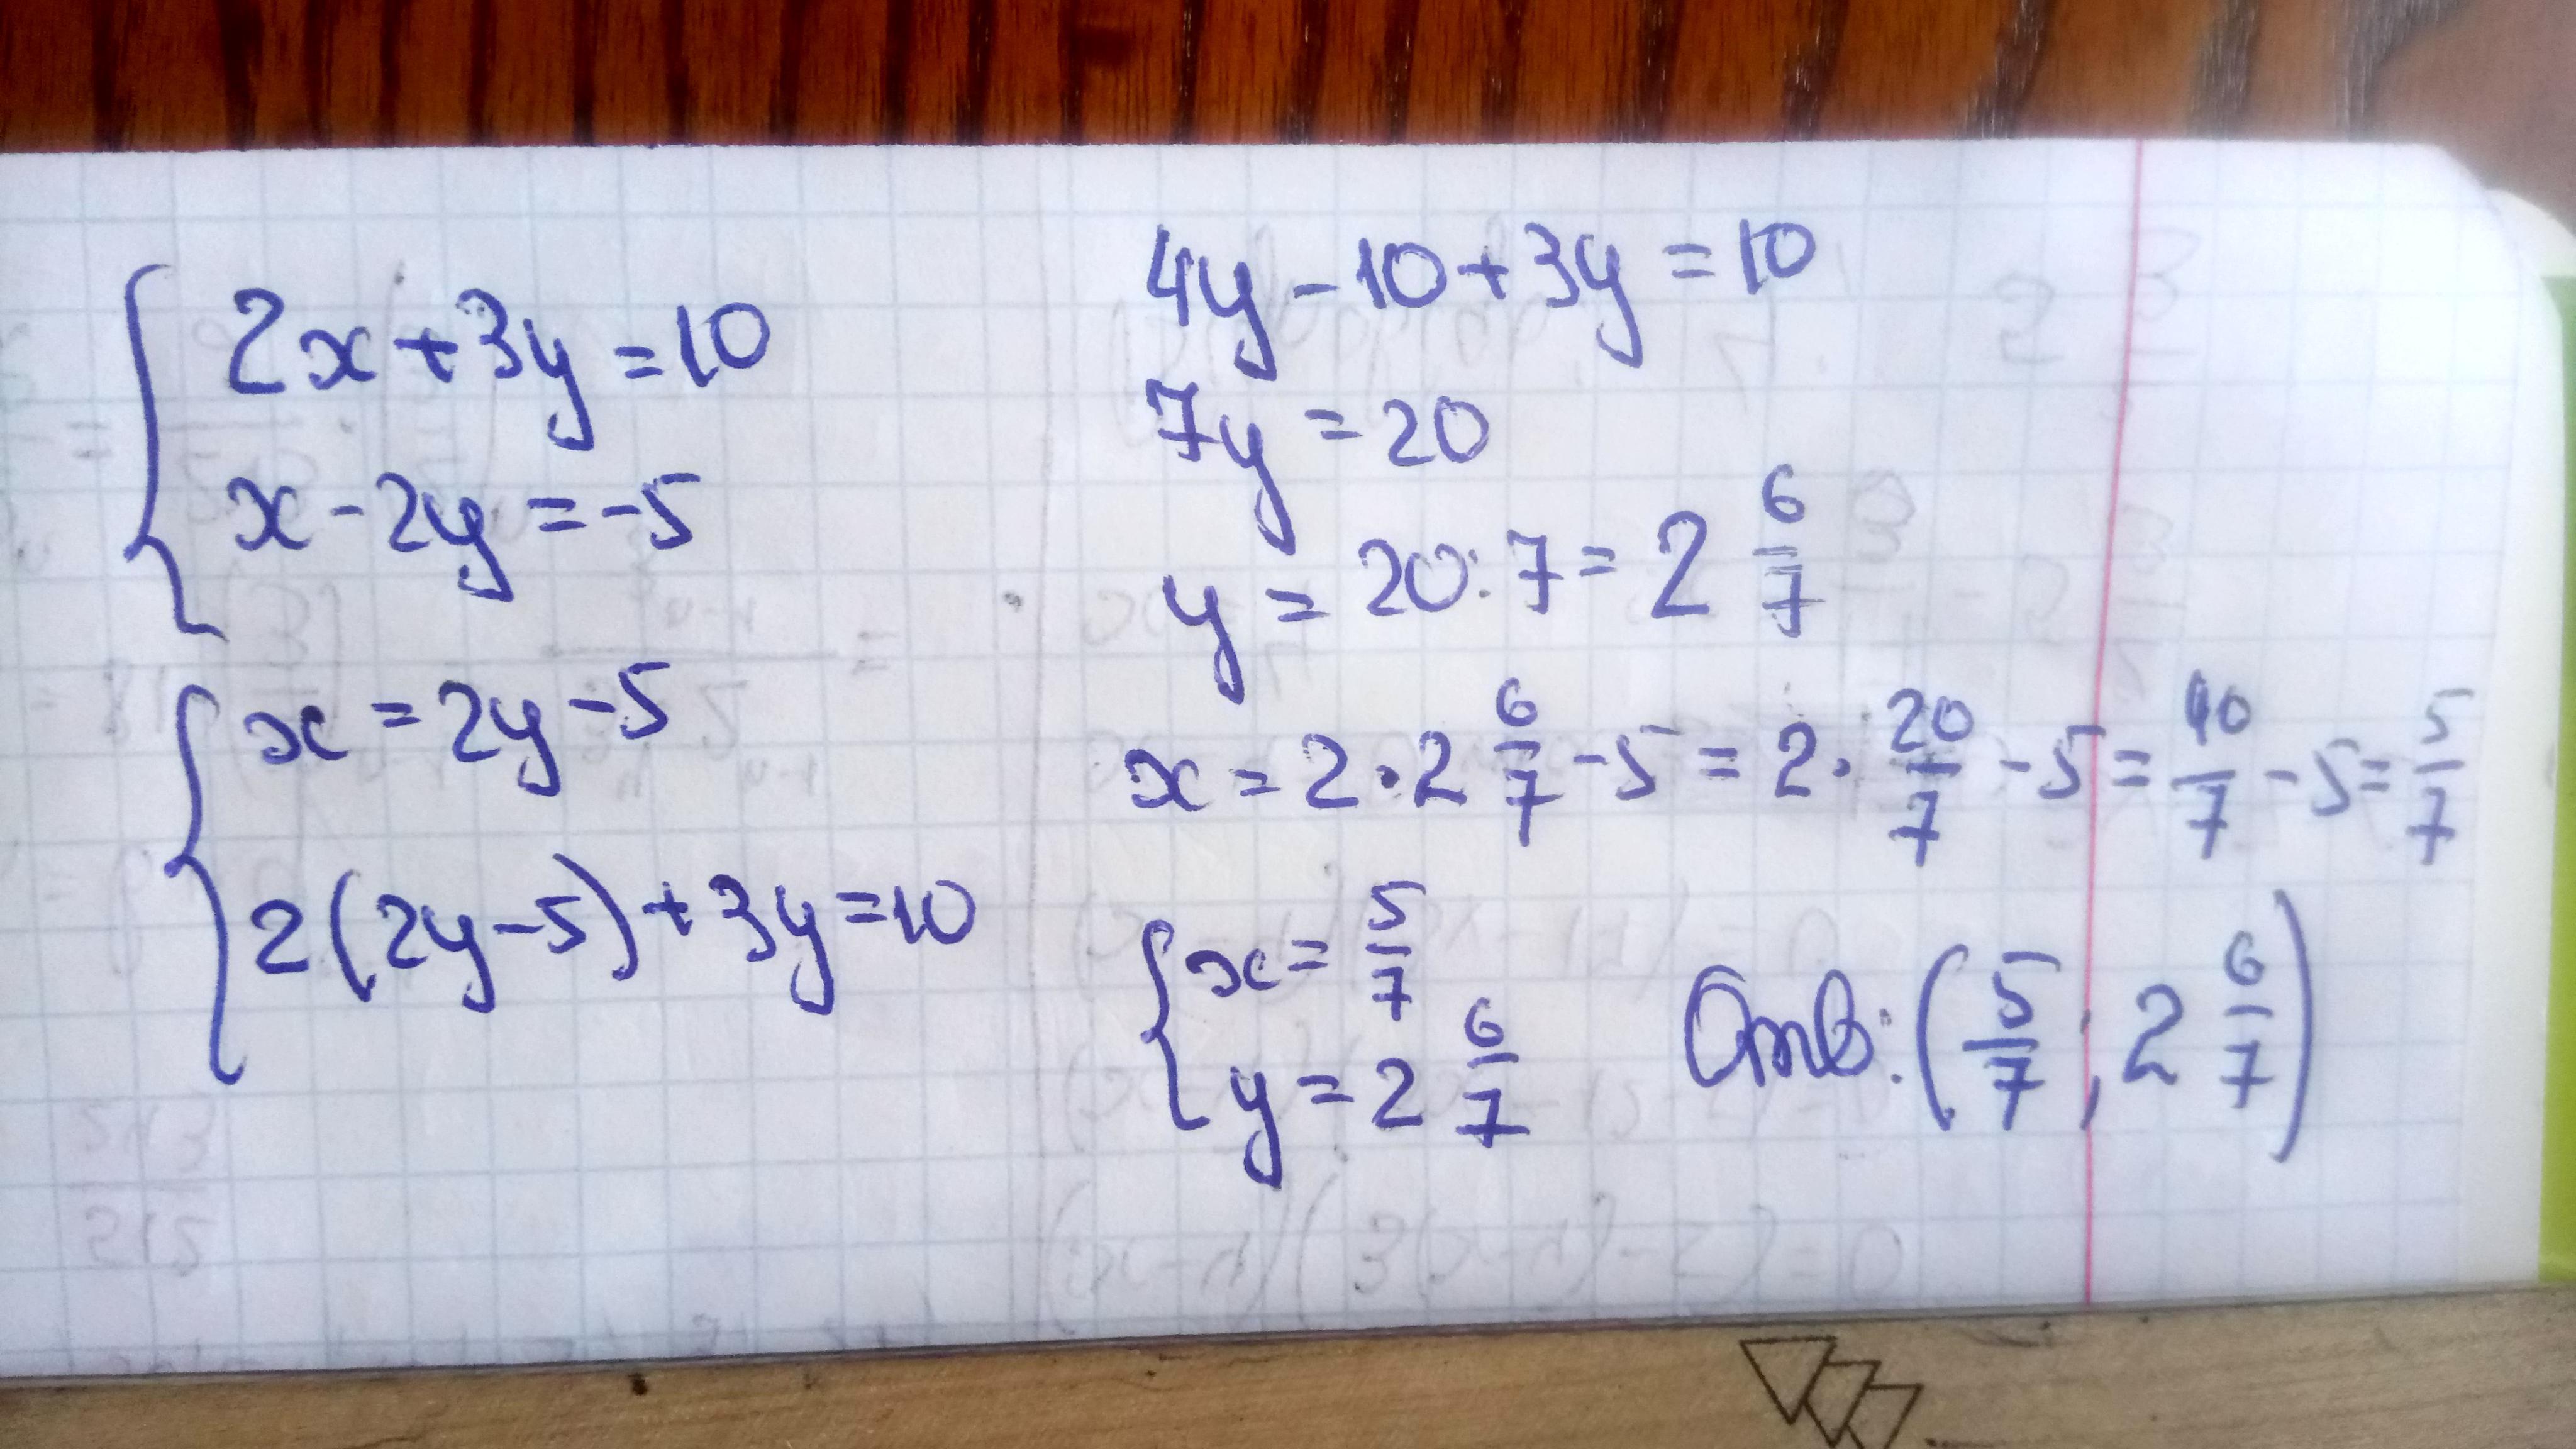 2x+3y=10
x-2y=-5
x=2y-5
2(2y-5)+3y=10
4y-10+3y=10
7y=20
y=20:7=2 6/7
x=2·2 6/7-5=2·20/7-5=40/7-5=5/7
x=5/7
y=2 6/7
Отв:(5/7;2 6/7)